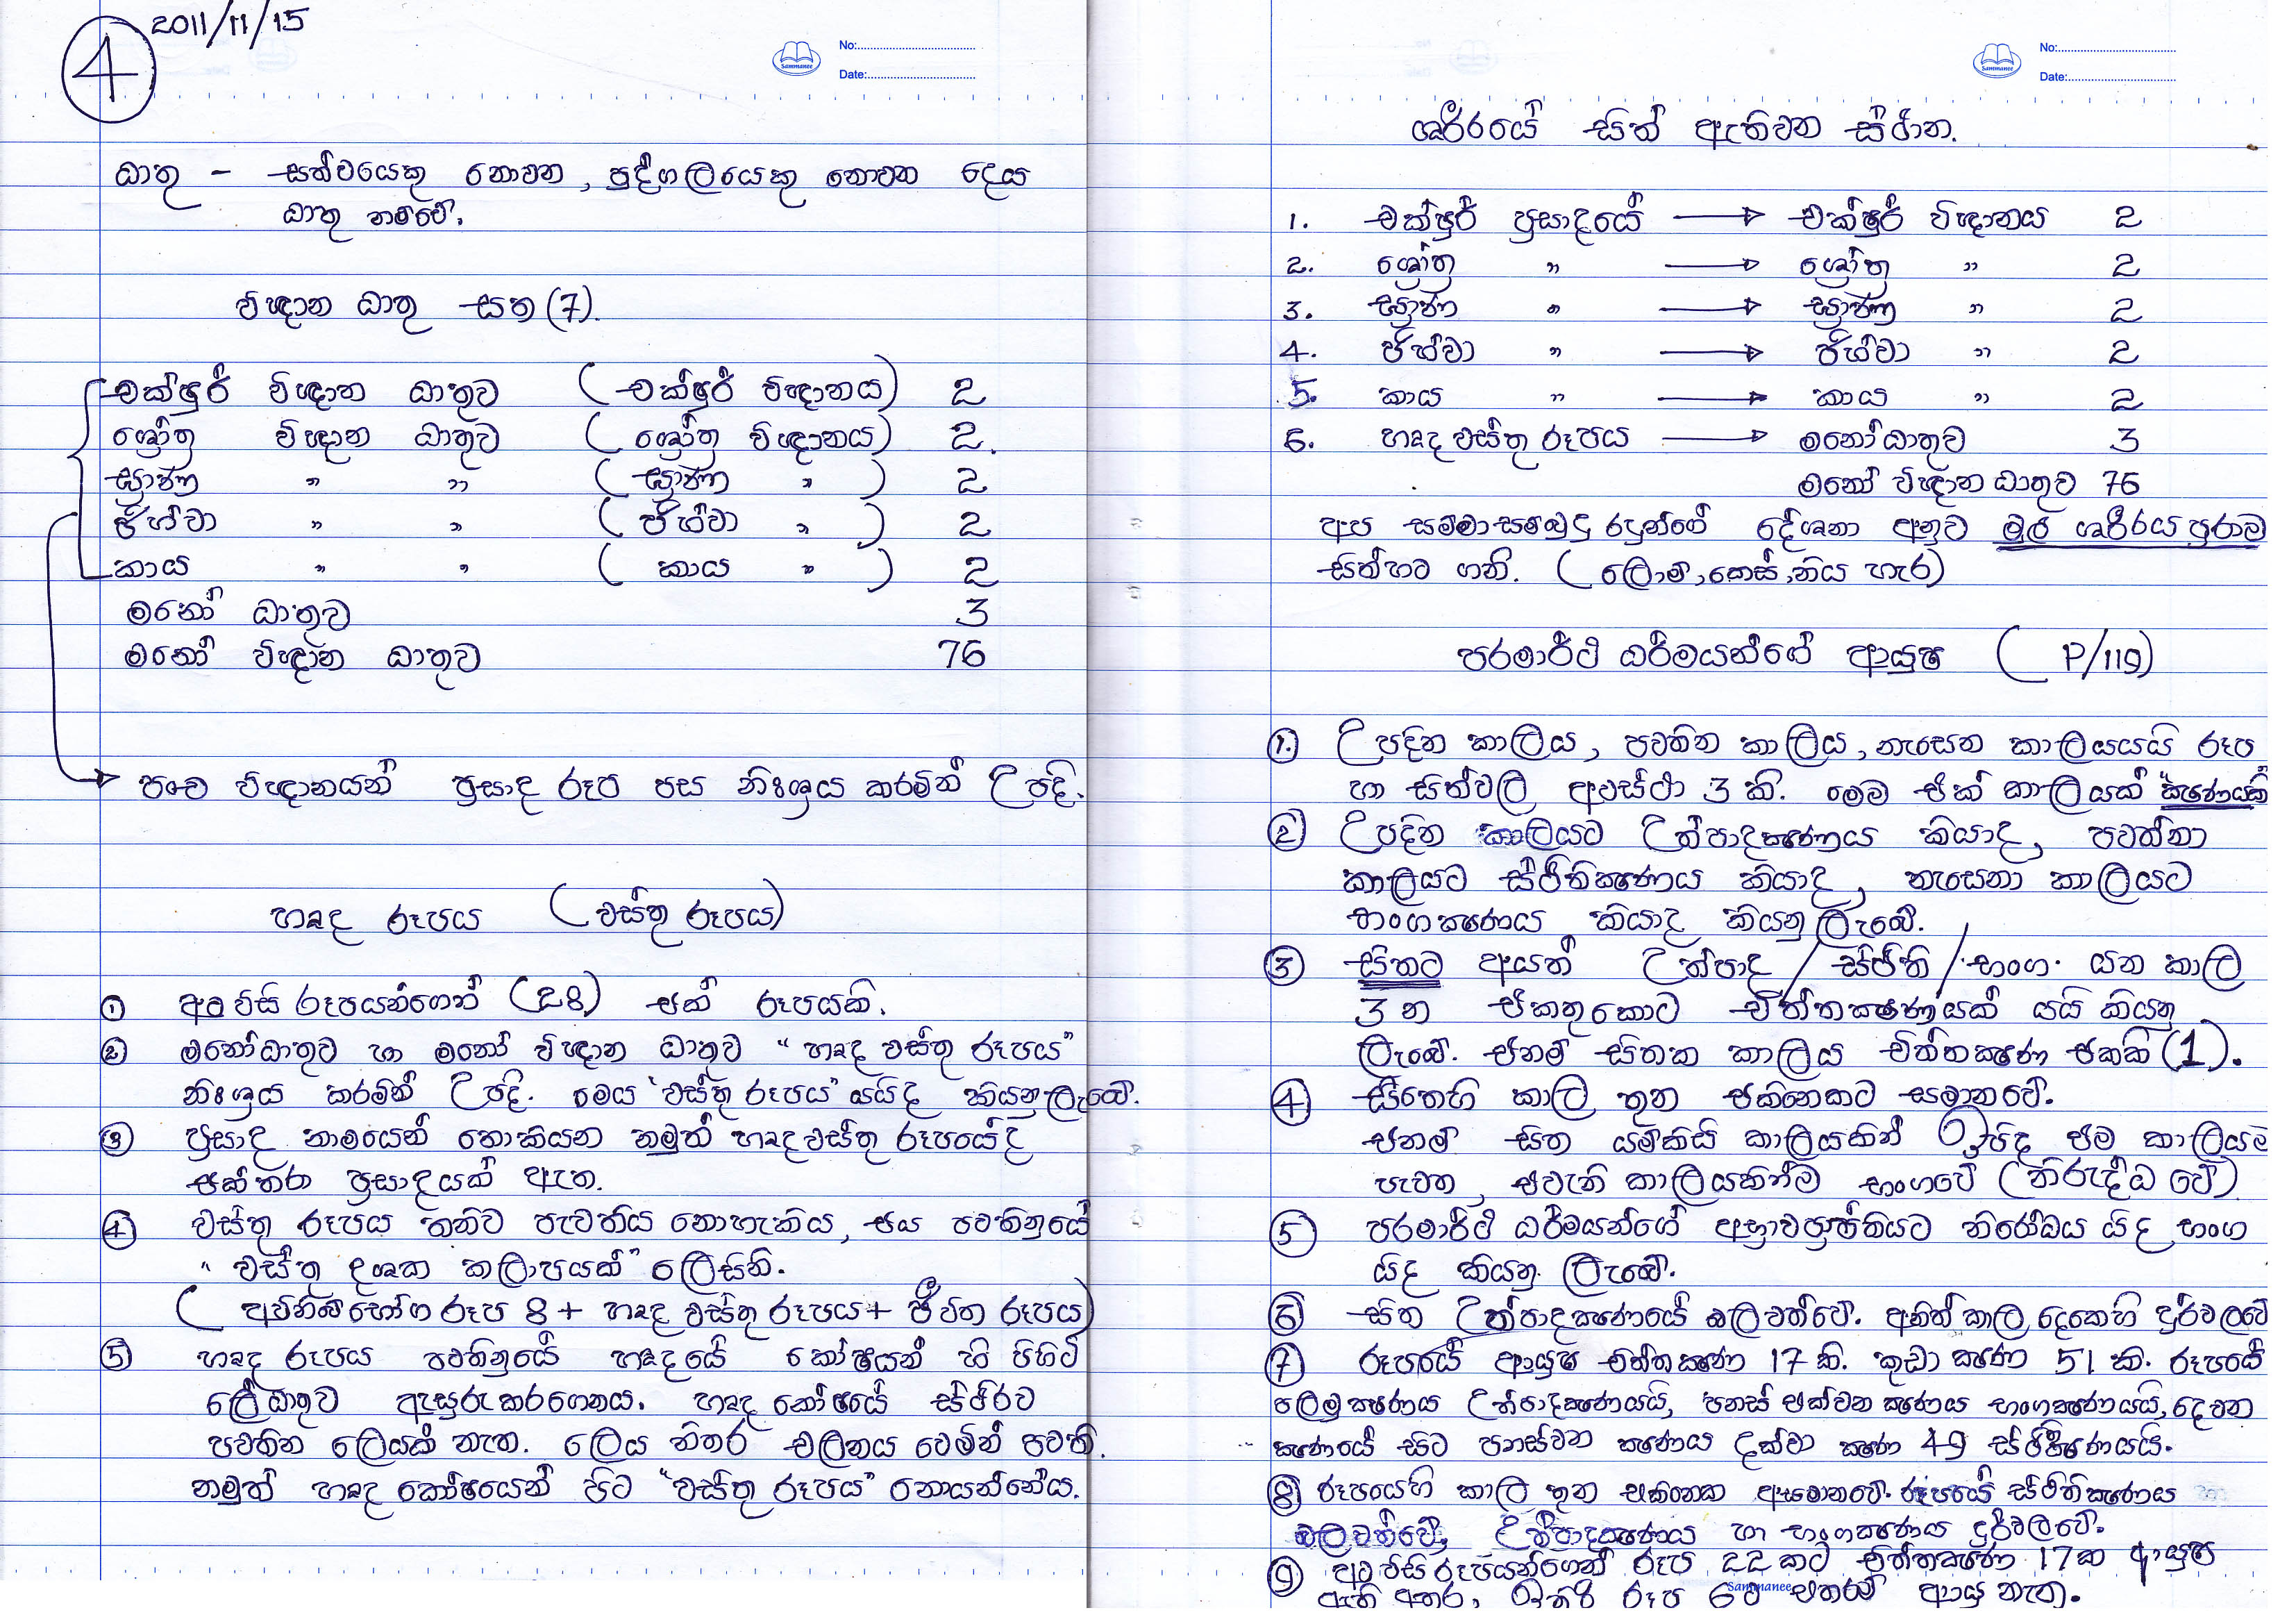 4
2011/11/15
Sammanee
No:
Date:
ධාතු - සත්වයෙකු නොවන, පුද්ගලයෙකු නොවන දෙය
ධාතු නම්වේ.
විඥාන ධාතු සත (7).
චක්ෂුර් විඥාන ධාතුව (චක්ෂුර් විඥානය) 2
ශ්‍රෝත්‍ර විඥාන ධාතුව (ශ්‍රෝත්‍ර විඥානය) 2.
ඝ්‍රාණ " " (ඝ්‍රාණ " ) 2
ජිහ්වා " " (ජිහ්වා " ) 2
කාය " " (කාය " ) 2
මනෝ ධාතුව 3
මනෝ විඥාන ධාතුව 76
පංච විඥානයන් ප්‍රසාද රූප පස නිඃශ්‍රය කරමින් උපදී.
හෘද රූපය (වස්තු රූපය)
1 අට විසි රූපයන්ගෙන් (28) එක් රූපයකි.
2 මනෝධාතුව හා මනෝ විඥාන ධාතුව "හෘද වස්තු රූපය"
නිඃශ්‍රය කරමින් උපදී. මෙය "වස්තු රූපය" යයිද කියනු ලැබේ.
3 ප්‍රසාද නාමයෙන් නොකියන නමුත් හෘදවස්තු රූපයේද
එක්තරා ප්‍රසාදයක් ඇත.
4 වස්තු රූපය තනිව පැවතිය නොහැකිය, එය පවතිනුයේ
"වස්තු දශක කලාපයක්" ලෙසිනි.
(අවිනිබ්භෝග රූප 8 + හෘද වස්තු රූපය + ජීවිත රූපය)
5 හෘද රූපය පවතිනුයේ හෘදයේ කෝෂයන් හි පිහිටි
ලේධාතුව ඇසුරු කරගෙනය. හෘද කෝෂයේ ස්ථිරව
පවතින ලෙයක් නැත. ලෙය නිතර චලනය වෙමින් පවතී.
නමුත් හෘද කෝෂයෙන් පිට "වස්තු රූපය" නොයන්නේය.
Sammanee
No:
Date:
ශරීරයේ සිත් ඇතිවන ස්ථාන.
1. චක්ෂුර් ප්‍රසාදයේ → චක්ෂුර් විඥානය 2
2. ශ්‍රෝත්‍ර " → ශ්‍රෝත්‍ර " 2
3. ඝ්‍රාණ " → ඝ්‍රාණ " 2
4. ජිහ්වා " → ජිහ්වා " 2
5. කාය " → කාය " 2
6. හෘද වස්තු රූපය → මනෝධාතුව 3
මනෝ විඥාන ධාතුව 76
අප සම්මා සම්බුදු රදුන්ගේ දේශනා අනුව මුලු ශරීරය පුරාම
සිත්හට ගනී. (ලොම්, කෙස්, නිය හැර)
පරමාර්ථ ධර්මයන්ගේ ආයුෂ (P/119)
1. උපදින කාලය, පවතින කාලය, නැසෙන කාලයයයි රූප
හා සිත්වල අවස්ථා 3 කි. මෙම එක් කාලයක් "ක්ෂණයකි
2 උපදින කාලයට උත්පාදක්ෂණය කියාද, පවත්නා
කාලයට ස්ථිතික්ෂණය කියාද, නැසෙනා කාලයට
භංගක්ෂණය කියාද කියනු ලැබේ.
3 සිතට අයත් උත්පාද / ස්ථිති / භංග යන කාල
3 න එකතුකොට චිත්තක්ෂණයක් යයි කියනු
ලැබේ. එනම් සිතක කාලය චිත්තක්ෂණ එකකි (1).
4 සිතෙහි කාල තුන එකිනෙකට සමානවේ.
එනම් සිත යම්කිසි කාලයකින් ඉපිද එම කාලයම
පැවත, එවැනි කාලයකින්ම භංගවේ (නිරුද්ධ වේ)
5 පරමාර්ථ ධර්මයන්ගේ අභාවප්‍රාප්තියට නිරෝධය යිද භංග
යිද කියනු ලැබේ.
6 සිත උත්පාදක්ෂණයේ බලවත්වේ. අනිත් කාල දෙකෙහි දුර්වලවේ
7 රූපයේ ආයුෂ චිත්තක්ෂණ 17 කි. කුඩා ක්ෂණ 51 කි. රූපයේ
පලමු ක්ෂණය උත්පාදක්ෂණයයි, පනස් එක්වන ක්ෂණය භංගක්ෂණයයි, දෙවන
ක්ෂණයේ සිට පනස්වන ක්ෂණය දක්වා ක්ෂණ 49 ස්ථිතික්ෂණයයි.
8 රූපයෙහි කාල තුන එකිනෙක අසමානවේ. රූපයේ ස්ථිතික්ෂණය
බලවත්වේ, උත්පාදක්ෂණය හා භංගක්ෂණය දුර්වලවේ.
9 අට විසි රූපයන්ගෙන් රූප 22 කට චිත්තක්ෂණ 17ක ආයුෂ
ඇති අතර, ඉතිරි රූප 6ට එතරම් ආයු නැත.
Sammanee